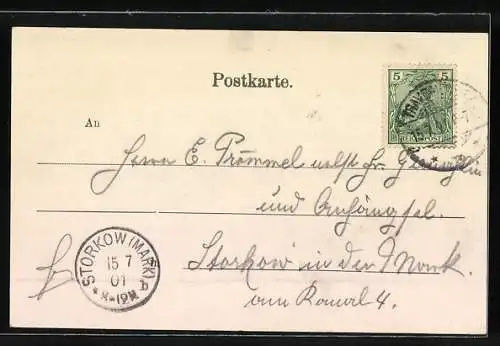 Postkarte.
5 5
REICHSPOST
An
Herrn E. Trömmel nebst Fr. Gemahlin
und Anhängsel.
Storkow in der Mark
am Kanal 4.
STORKOW (MARK)
15 7
01